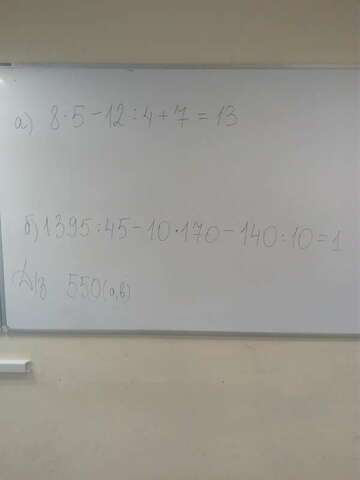 а) 8·5-12:4+7=13
б) 1395:45-10·170-140:10=1
Д/з 550(а,б)